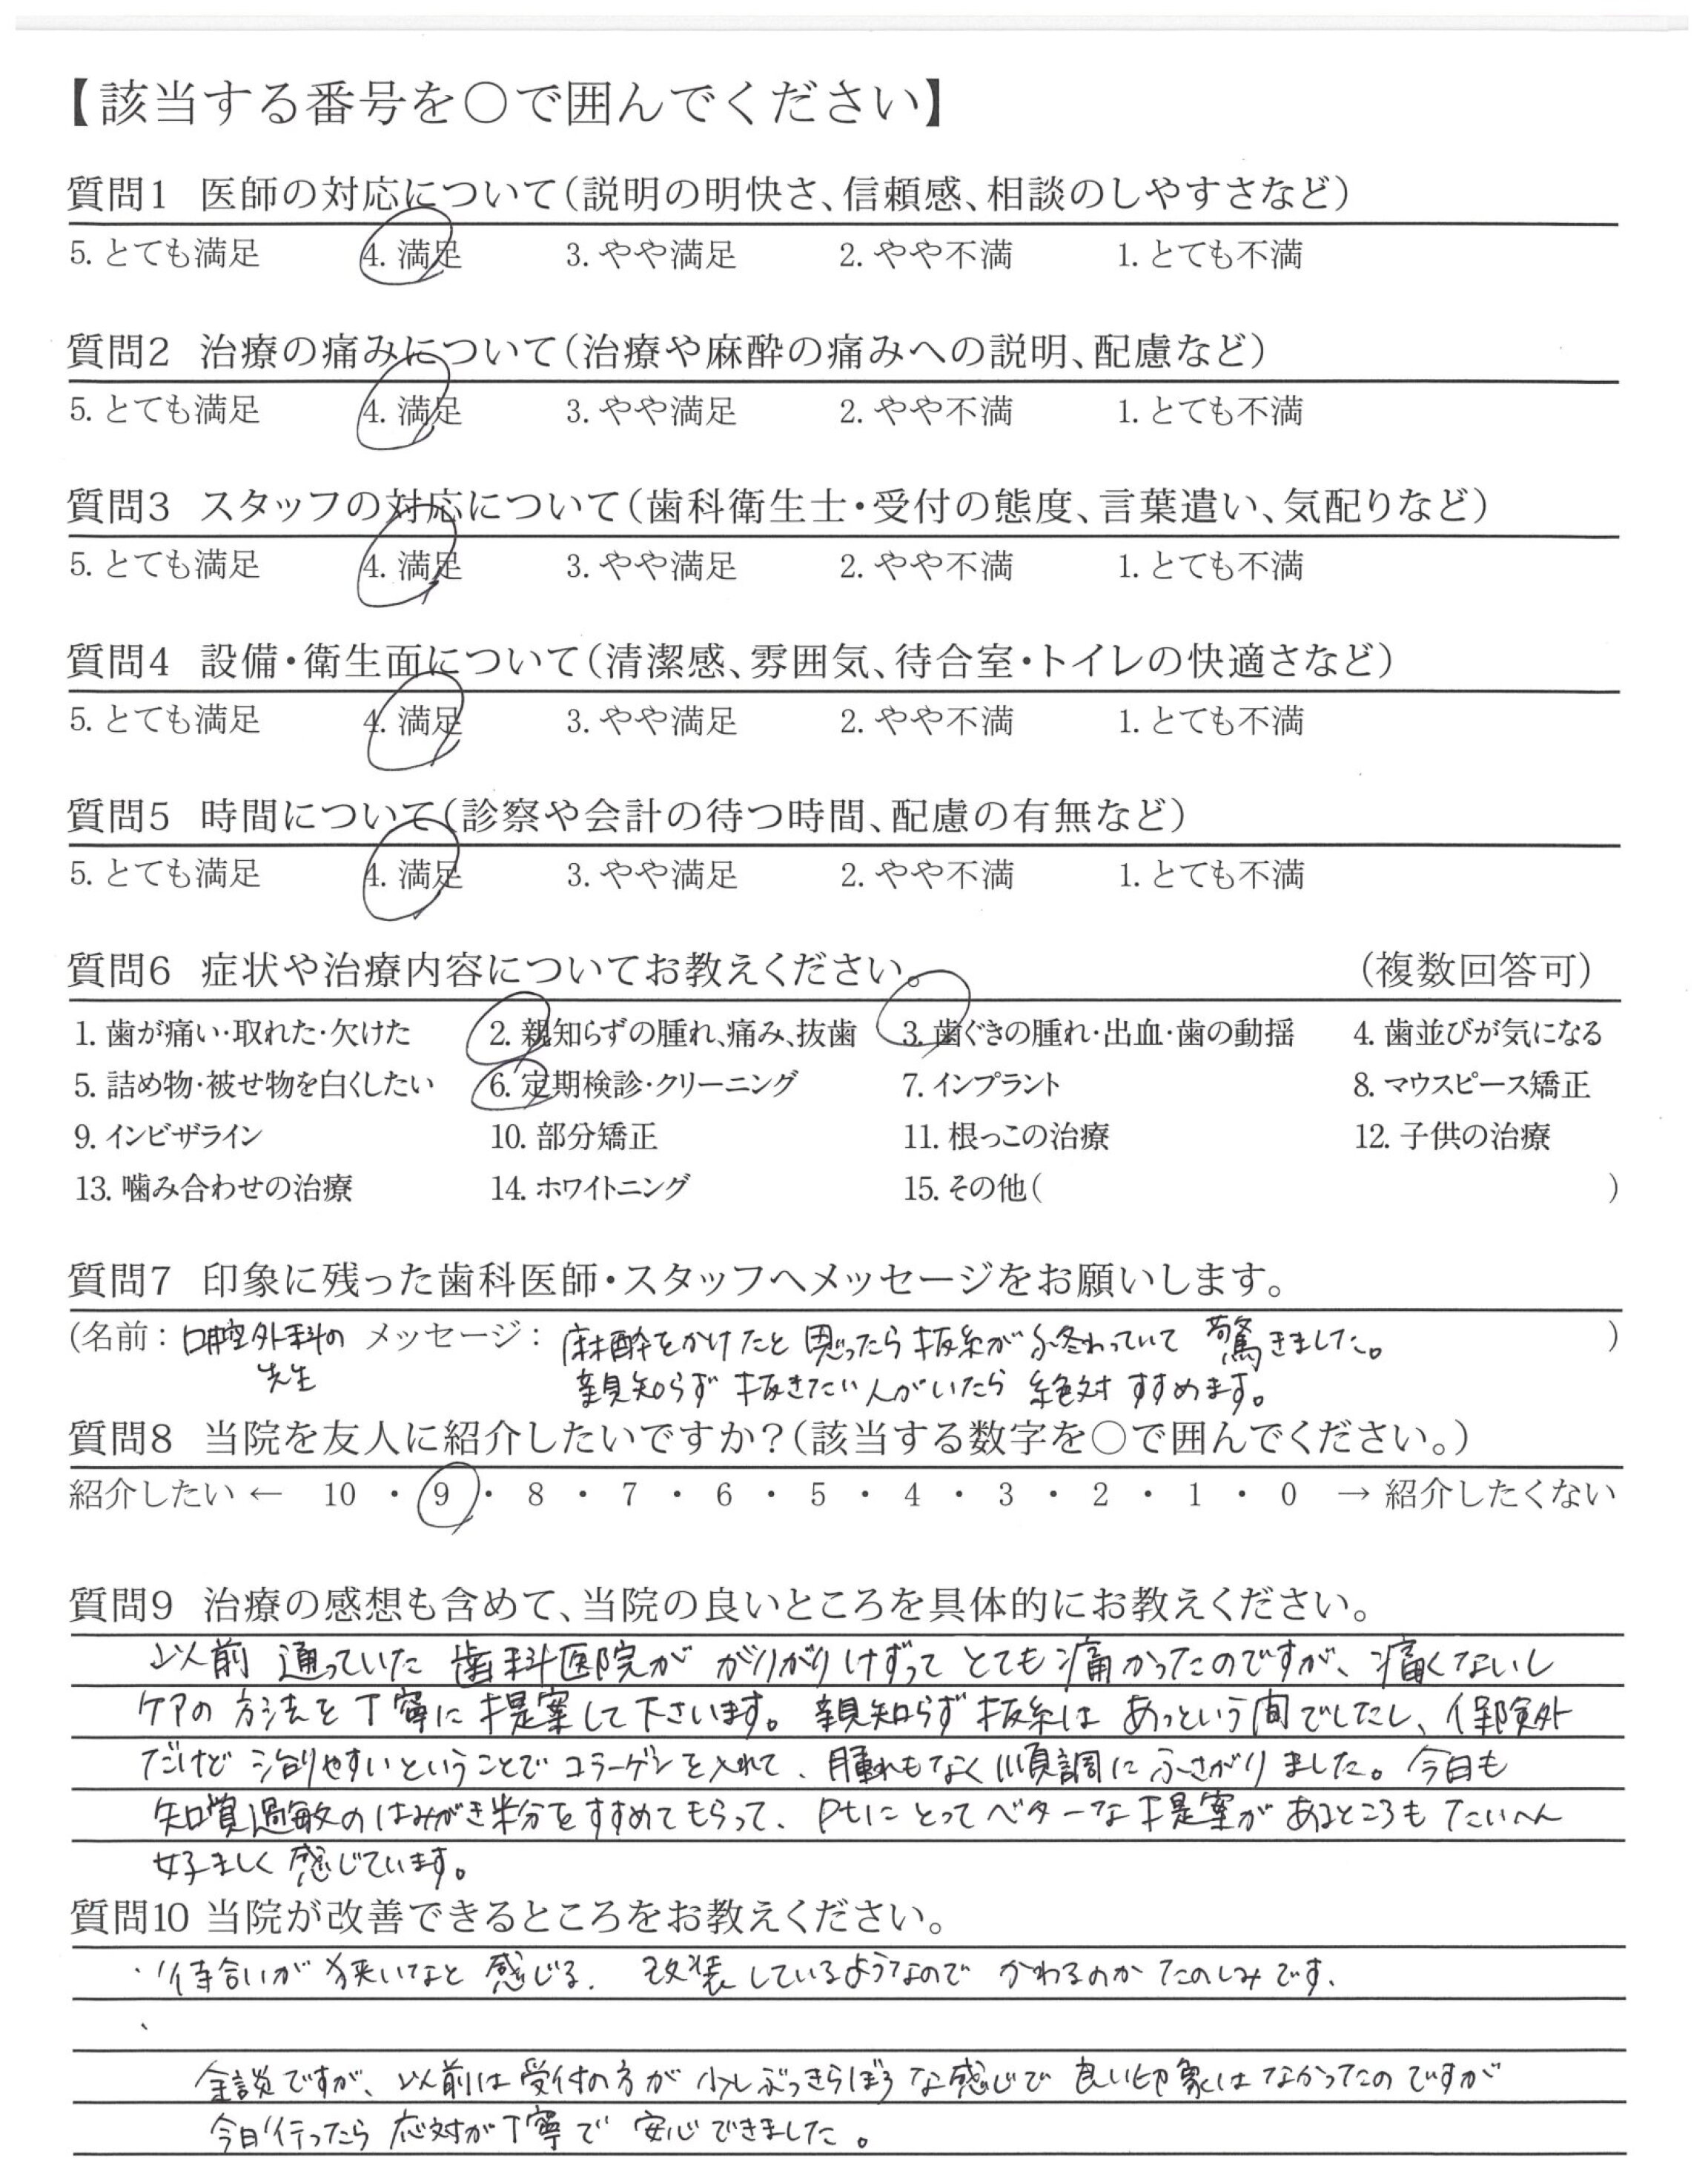 【該当する番号を○で囲んでください】
質問1 医師の対応について(説明の明快さ、信頼感、相談のしやすさなど)
5. とても満足 4. 満足 3. やや満足 2. やや不満 1. とても不満
質問2 治療の痛みについて(治療や麻酔の痛みへの説明、配慮など)
5. とても満足 4. 満足 3. やや満足 2. やや不満 1. とても不満
質問3 スタッフの対応について(歯科衛生士・受付の態度、言葉遣い、気配りなど)
5. とても満足 4. 満足 3. やや満足 2. やや不満 1. とても不満
質問4 設備・衛生面について(清潔感、雰囲気、待合室・トイレの快適さなど)
5. とても満足 4. 満足 3. やや満足 2. やや不満 1. とても不満
質問5 時間について(診察や会計の待つ時間、配慮の有無など)
5. とても満足 4. 満足 3. やや満足 2. やや不満 1. とても不満
質問6 症状や治療内容についてお教えください。 (複数回答可)
1. 歯が痛い・取れた・欠けた 2. 親知らずの腫れ、痛み、抜歯 3. 歯ぐきの腫れ・出血・歯の動揺 4. 歯並びが気になる
5. 詰め物・被せ物を白くしたい 6. 定期検診・クリーニング 7. インプラント 8. マウスピース矯正
9. インビザライン 10. 部分矯正 11. 根っこの治療 12. 子供の治療
13. 噛み合わせの治療 14. ホワイトニング 15. その他( )
質問7 印象に残った歯科医師・スタッフへメッセージをお願いします。
(名前: 口腔外科の メッセージ: 麻酔をかけたと思ったら抜糸が終わっていて 驚きました。 )
先生 親知らず 抜きたい人がいたら 絶対すすめます。
質問8 当院を友人に紹介したいですか?(該当する数字を○で囲んでください。)
紹介したい ← 10 ・ 9 ・ 8 ・ 7 ・ 6 ・ 5 ・ 4 ・ 3 ・ 2 ・ 1 ・ 0 → 紹介したくない
質問9 治療の感想も含めて、当院の良いところを具体的にお教えください。
以前 通っていた 歯科医院が がりがりけずって とても痛かったのですが、痛くないし
ケアの方法を丁寧に提案して下さいます。親知らず抜糸は あっという間でしたし、保険外
だけど 治りやすいということで コラーゲンを入れて、腫れもなく順調に ふさがりました。今日も
知覚過敏のはみがき粉をすすめてもらって、Ptにとってベターな提案があるところもたいへん
好ましく 感じています。
質問10 当院が改善できるところをお教えください。
・待合いが狭いなと 感じる. 改装しているようなので かわるのか たのしみです.
、
余談ですが、以前は受付の方が 少しぶっきらぼうな感じで 良い印象はなかったのですが
今日行ったら 応対が丁寧で 安心できました。